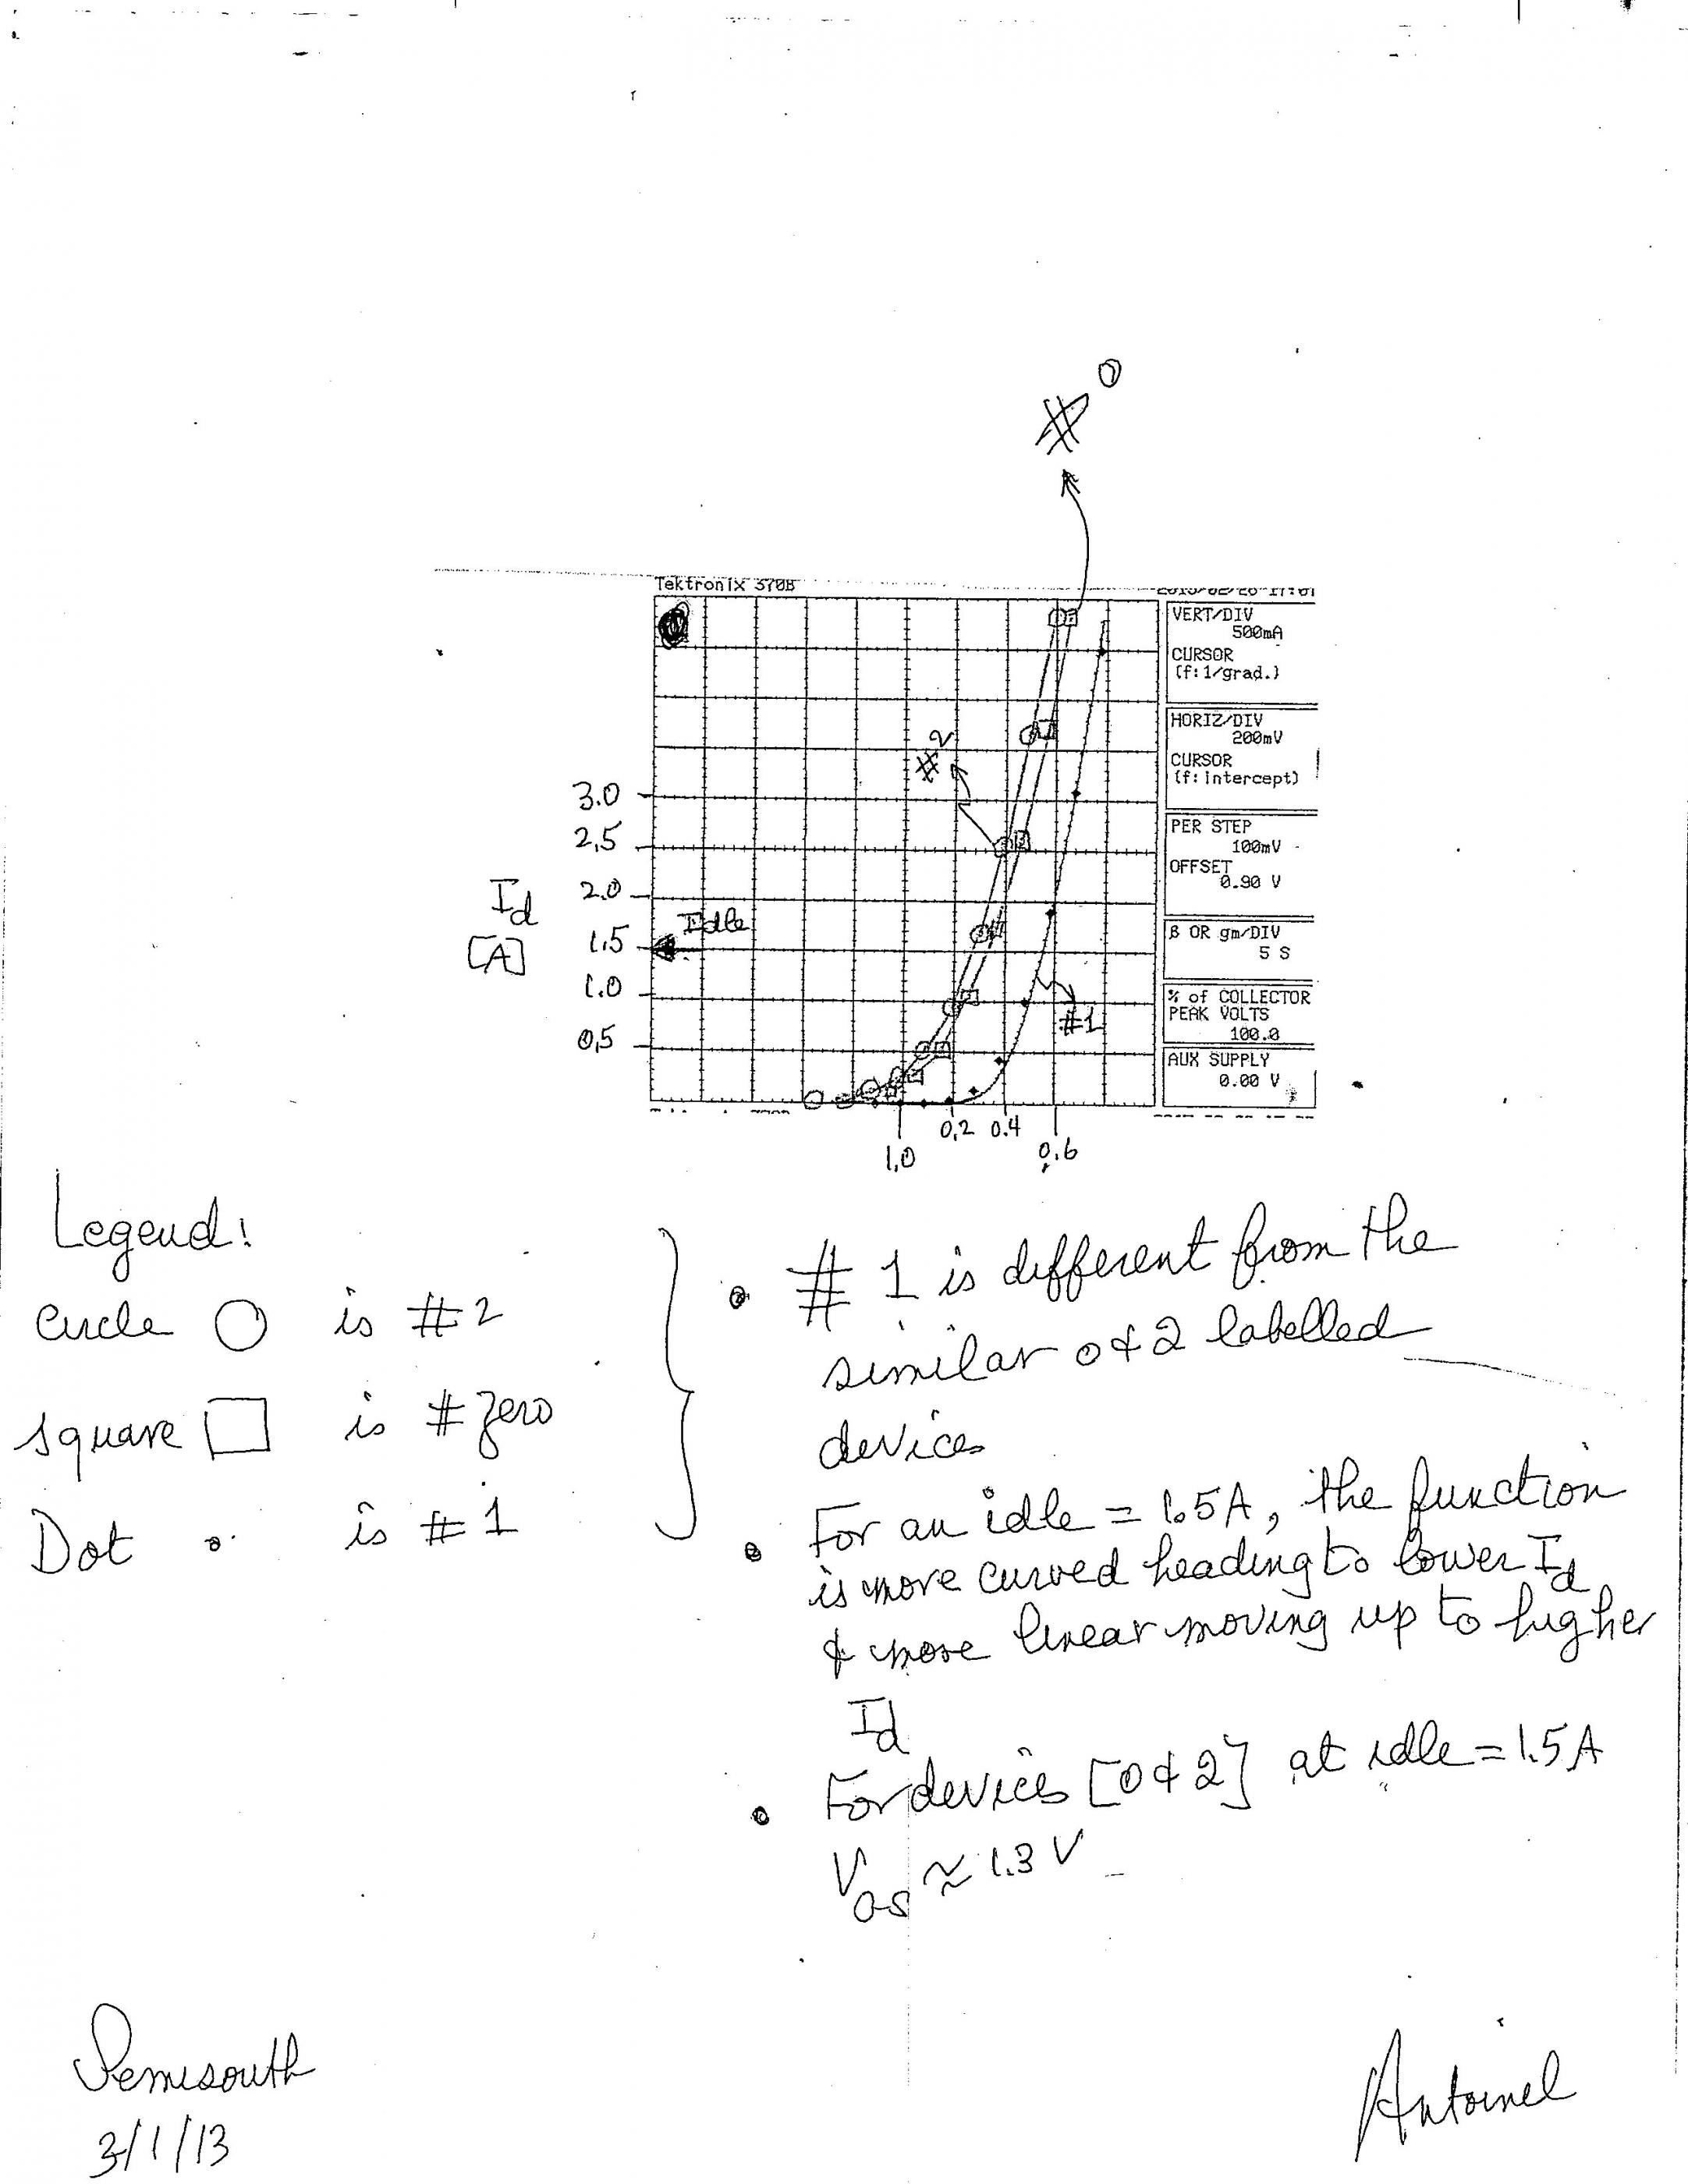 # 0
Tektronix 370B
VERT/DIV
500mA
CURSOR
(f:1/grad.)
HORIZ/DIV
200mV
CURSOR
(f:intercept)
PER STEP
100mV
OFFSET
0.90 V
β OR gm/DIV
5 S
% of COLLECTOR
PEAK VOLTS
100.0
AUX SUPPLY
0.00 V
#2
3.0
2,5
2.0
Id
[A]
Idle
1,5
1.0
0,5
#1
0,2 0.4
1,0 0.6
Legend:
circle ○ is #2
square □ is # Zero
Dot • is #1
• # 1 is different from the
similar 0 & 2 labelled
devices
• For an idle = 1.5A, the function
is more curved heading to lower Id
& more linear moving up to higher
Id
• For devices [0 & 2] at idle = 1.5A
VGS ≈ 1.3 V
Semisouth
3/1/13
Antoinel